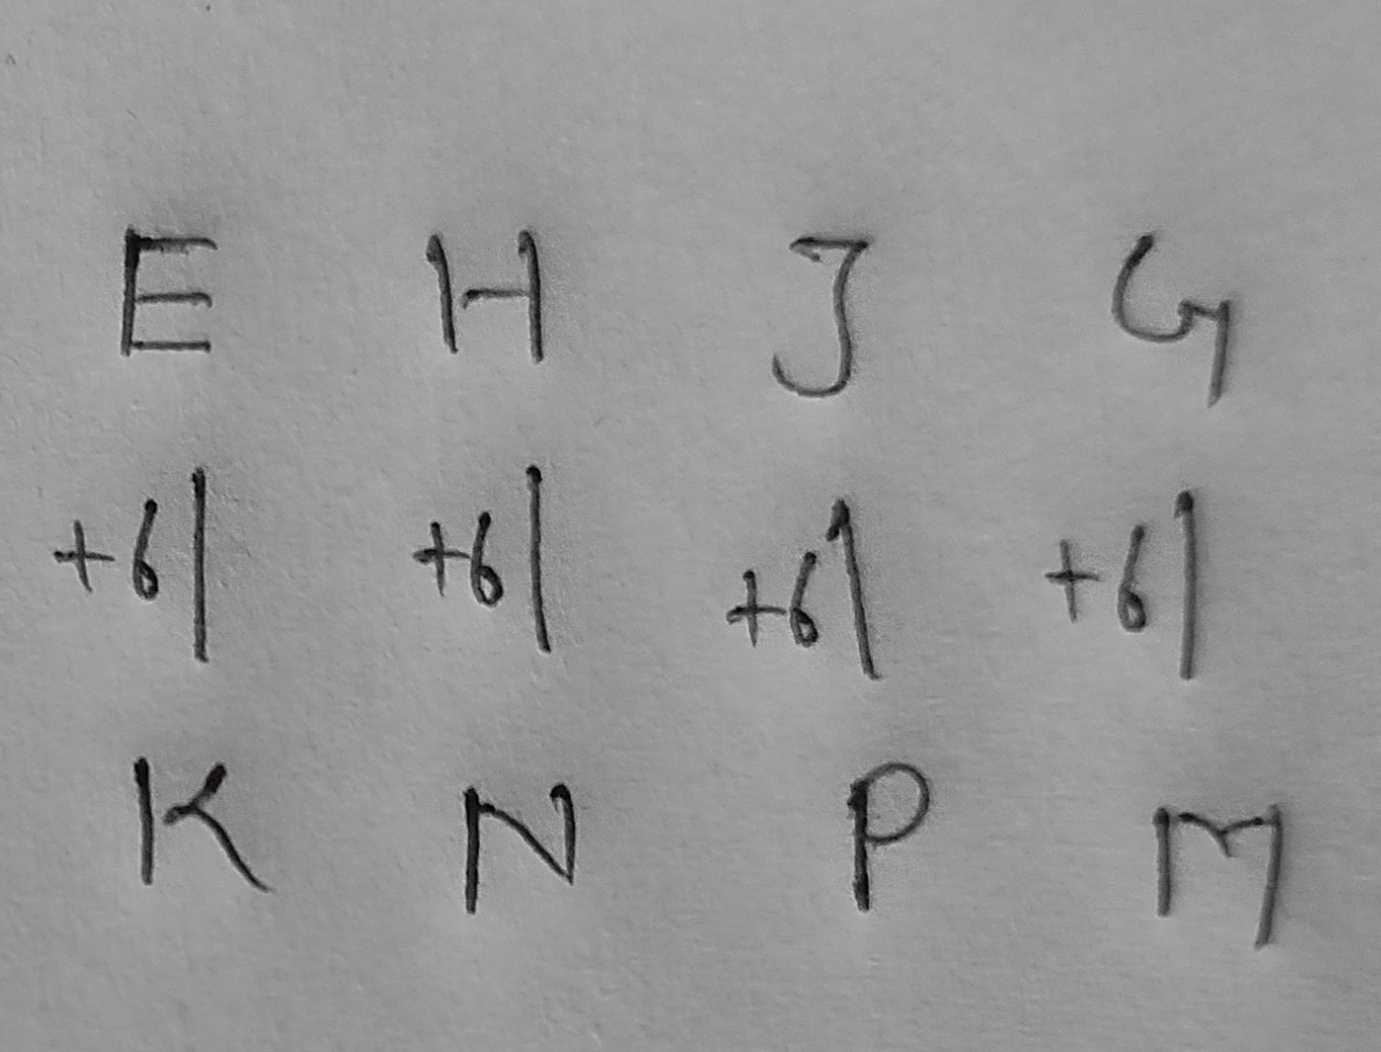 E H J G
+6| +6| +6| +6|
K N P M